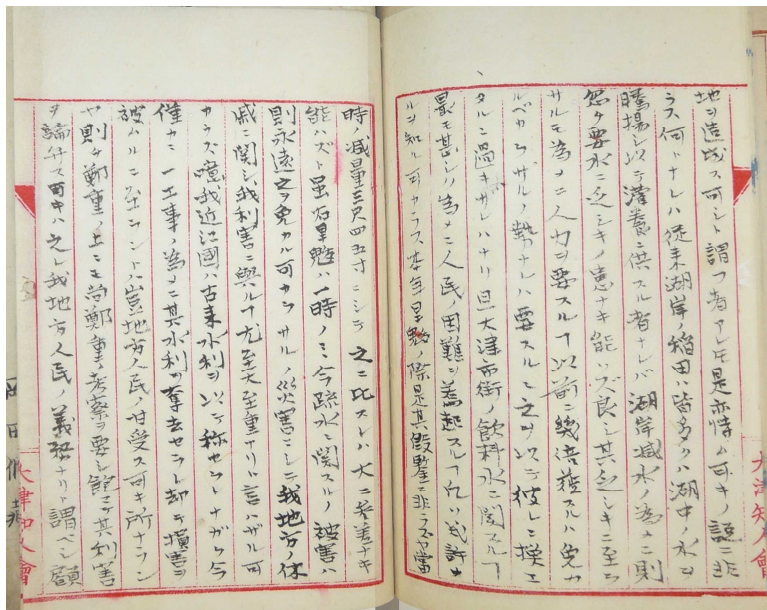 地ヲ造成ス可シト謂フ者アレ𪜈是亦恃ム可キノ説ニ非
ラス何トナレハ従来湖岸ノ稲田ハ皆多クハ湖中ノ水ヲ
騰揚シ以テ灌養ニ供スル者ナレバ湖岸減水ノ為メニ則
忽タ要水ニ乏シキノ患ナキ能ハズ良シ其乏シキニ至ラ
サルモ為メニ人力ヲ要スルヿ以前ニ幾倍蓰スルハ免カ
ルベカラザルノ勢ナレハ要スルニ之ヲ以テ彼レニ換ユ
タルニ過キサレハナリ且大津市街ノ飲料水ニ関スルヿ
最モ甚シク為メニ人民ノ困難ヲ惹起スルヿ凡ソ幾許ナ
ルヲ知ル可カラス本年旱魃ノ際是其殷鑒ニ非ラスヤ当
時ノ減量三尺四五寸ニシテ之ニ比スレハ大ニ差等ナキ
能ハズト虽𪜈旱魃ハ一時ノミ今疏水ニ関スルノ被害ハ
則永遠之ヲ免カル可カラサルノ災害ニシテ我地方ノ休
戚ニ関シ我利害ニ與ルヿ尤至大至重ナリト言ハザル可
カラズ噫我近江國ハ古来水利ヲ以テ称セラレナガラ今
僅カニ一工事ノ為メニ其水利ヲ奪去セラレ却テ損害ヲ
被ムルニ至ラントハ豈地方人民ノ甘受ス可キ所ナラン
ヤ則タ鄭重ノ上ニモ尚鄭重ノ考察ヲ要シ飽マテ其利害
ヲ論弁ス可キハ之レ我地方人民ノ義務ナリト謂ベシ顧
大津知人會
大津知人會